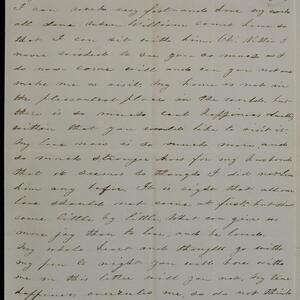 I can work very fast and done my work
all done when William comes home so
that I can sit with him. Oh! Nellie I
never wished to see you as much as I
do now come will and can you not
make me a visit. My home is not in
the pleasantest place in the world, but
there is so much happiness
within that you would like to visit it.
My love now is so much more, and
so much stronger for my husband
that it seems as though I did not love
him any before. It is right that all our
love should not come at first, but
come little by little. What can give us
more joy than to love, and be loved.
My whole heart and thought go with
my pen to night you will bear with
me in this letter will you not, my
happiness me, so do not think